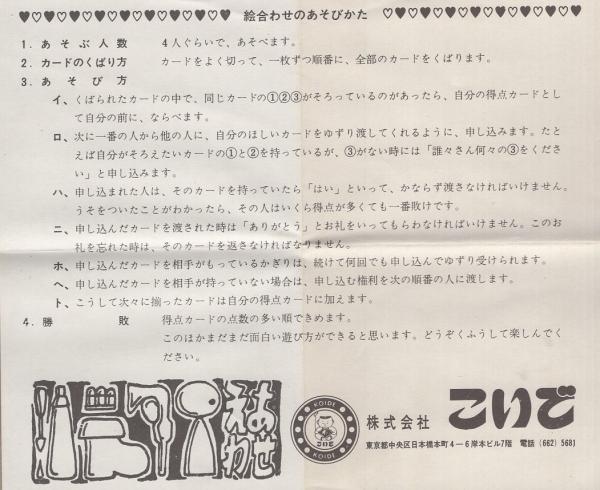 ♥♡♥♡♥♡♥♡♥♡♥♡♥♡♥♡♥ 絵合わせのあそびかた ♡♥♡♥♡♥♡♥♡♥♡♥♡♥♡♥
1．あそぶ人数 4人ぐらいで、あそべます。
2．カードのくばり方 カードをよく切って、一枚ずつ順番に、全部のカードをくばります。
3．あそび方
イ、くばられたカードの中で、同じカードの①②③がそろっているのがあったら、自分の得点カードとし
て自分の前に、ならべます。
ロ、次に一番の人から他の人に、自分のほしいカードをゆずり渡してくれるように、申し込みます。たと
えば自分がそろえたいカードの①と②を持っているが、③がない時には「誰々さん何々の③をくださ
い」と申し込みます。
ハ、申し込まれた人は、そのカードを持っていたら「はい」といって、かならず渡さなければいけません。
うそをついたことがわかったら、その人はいくら得点が多くても一番敗けです。
ニ、申し込んだカードを渡された時は「ありがとう」とお礼をいってもらわなければいけません。このお
礼を忘れた時は、そのカードを返さなければなりません。
ホ、申し込んだカードを相手がもっているかぎりは、続けて何回でも申し込んでゆずり受けられます。
ヘ、申し込んだカードを相手が持っていない場合は、申し込む権利を次の順番の人に渡します。
ト、こうして次々に揃ったカードは自分の得点カードに加えます。
4．勝敗 得点カードの点数の多い順できめます。
このほかまだまだ面白い遊び方ができると思います。どうぞくふうして楽しんでく
ださい。
えあわせ
KOIDE
KOIDE
株式会社 こいで
東京都中央区日本橋本町4－6岸本ビル7階 電話 (662) 5681